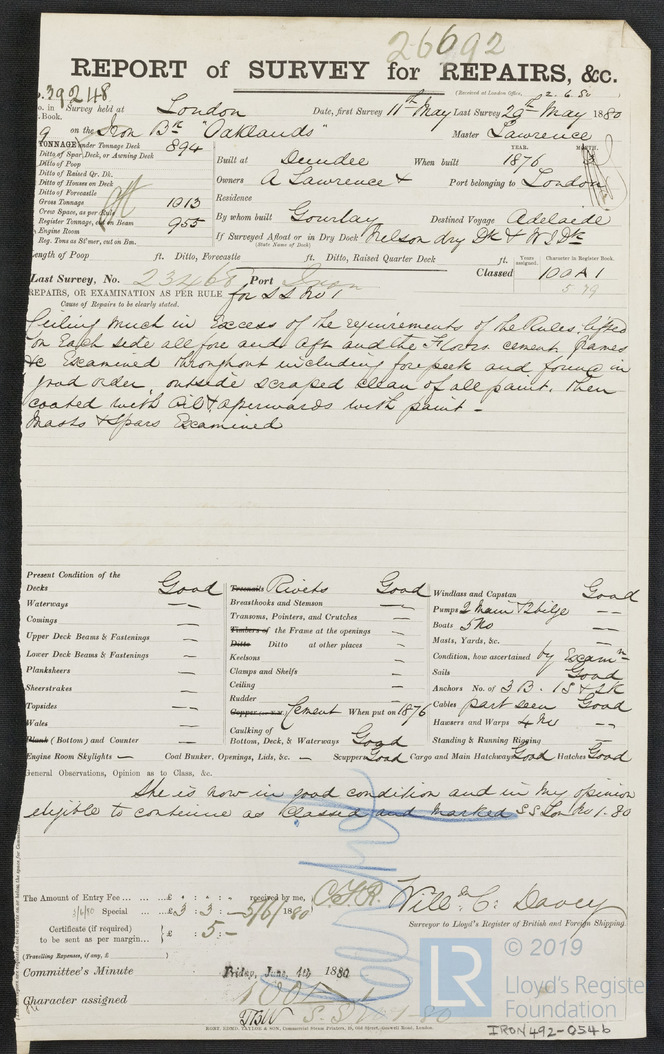 26692
REPORT of SURVEY for REPAIRS, &c.
(Received at London Office, 2.6.80
No. 39248
No. in Survey held at London Date, first Survey 11th May Last Survey 29th May 1880
Reg. Book.
9 on the Iron Bk "Oaklands" Master Lawrence
TONNAGE under Tonnage Deck 894
Ditto of Spar Deck, or Awning Deck
Ditto of Poop
Ditto of Raised Qr. Dk.
Ditto of Houses on Deck
Ditto of Forecastle
Gross Tonnage 1013
Crew Space, as per Rule
Register Tonnage, cut on Beam 955
Engine Room
Reg. Tons as St'mer, cut on Bm.
YEAR. MONTH.
Built at Dundee When built 1876 3
Owners A Lawrence & Port belonging to London
Residence
By whom built Gourlay Destined Voyage Adelaide
If Surveyed Afloat or in Dry Dock Nelson dry Dk & W I Dk
(State Name of Dock)
Length of Poop ft. Ditto, Forecastle ft. Ditto, Raised Quarter Deck ft.
Years assigned. Character in Register Book.
Last Survey, No. 23468 Port Classed 100A1
5 79
REPAIRS, OR EXAMINATION AS PER RULE for SS No 1
Cause of Repairs to be clearly stated.
Ceiling much in excess of the requirements of the Rules, lifted
on each side all fore and aft and the Floors cement, frames
&c Examined throughout including forepeak and found in
good order, outside scraped clean of all paint, then
coated with oil & afterwards with paint -
Masts & Spars Examined
Present Condition of the
Decks Good
Waterways
Comings
Upper Deck Beams & Fastenings
Lower Deck Beams & Fastenings
Planksheers
Sheerstrakes
Topsides
Wales
Plank (Bottom) and Counter
Engine Room Skylights — Coal Bunker, Openings, Lids, &c. — Scuppers Good Cargo and Main Hatchways Good Hatches Good
Treenails Rivets Good
Breasthooks and Stemson
Transoms, Pointers, and Crutches
Timbers of the Frame at the openings
Ditto Ditto at other places
Keelsons
Clamps and Shelfs
Ceiling
Rudder
Cement When put on 1876
Caulking of
Bottom, Deck, & Waterways Good
Windlass and Capstan Good
Pumps 2 Main & 2 bilge
Boats 5 No
Masts, Yards, &c.
Condition, how ascertained by Examn
Sails Good
Anchors No. of 3 B. 1 S & 2 K
Cables part seen Good
Hawsers and Warps 4 No
Standing & Running Rigging
General Observations, Opinion as to Class, &c.
She is now in good condition and in my opinion
eligible to continue as Classed and marked S S Lon No 1. 80
The Amount of Entry Fee ... ... ...£ : : received by me,
Special ... ...£ 3 : 3 : — 5/6/1880
Certificate (if required) to be sent as per margin... £ : 5 : -
(Travelling Expenses, if any, £ )
Willm C: Davey
Surveyor to Lloyd's Register of British and Foreign Shipping
Committee's Minute Friday, June 4th 1880
Character assigned 100A1
S.S. No 1-80
ROBT. EDMD. TAYLOR & SON, Commercial Steam Printers, 19, Old Street, Goswell Road, London.
LR
© 2019
Lloyd's Register
Foundation
IRON492-0546